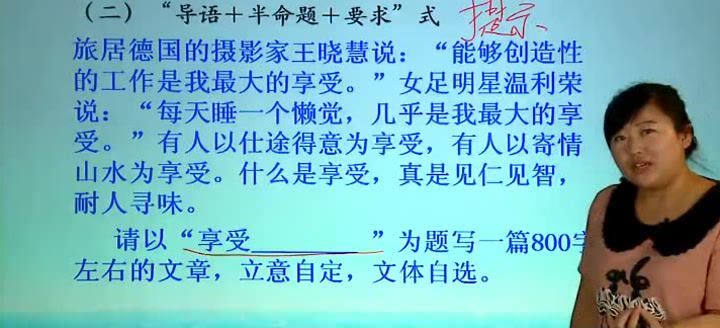 （二）“导语＋半命题＋要求”式 提示
旅居德国的摄影家王晓慧说：“能够创造性
的工作是我最大的享受。”女足明星温利荣
说：“每天睡一个懒觉，几乎是我最大的享
受。”有人以仕途得意为享受，有人以寄情
山水为享受。什么是享受，真是见仁见智，
耐人寻味。
请以“享受________”为题写一篇800字
左右的文章，立意自定，文体自选。